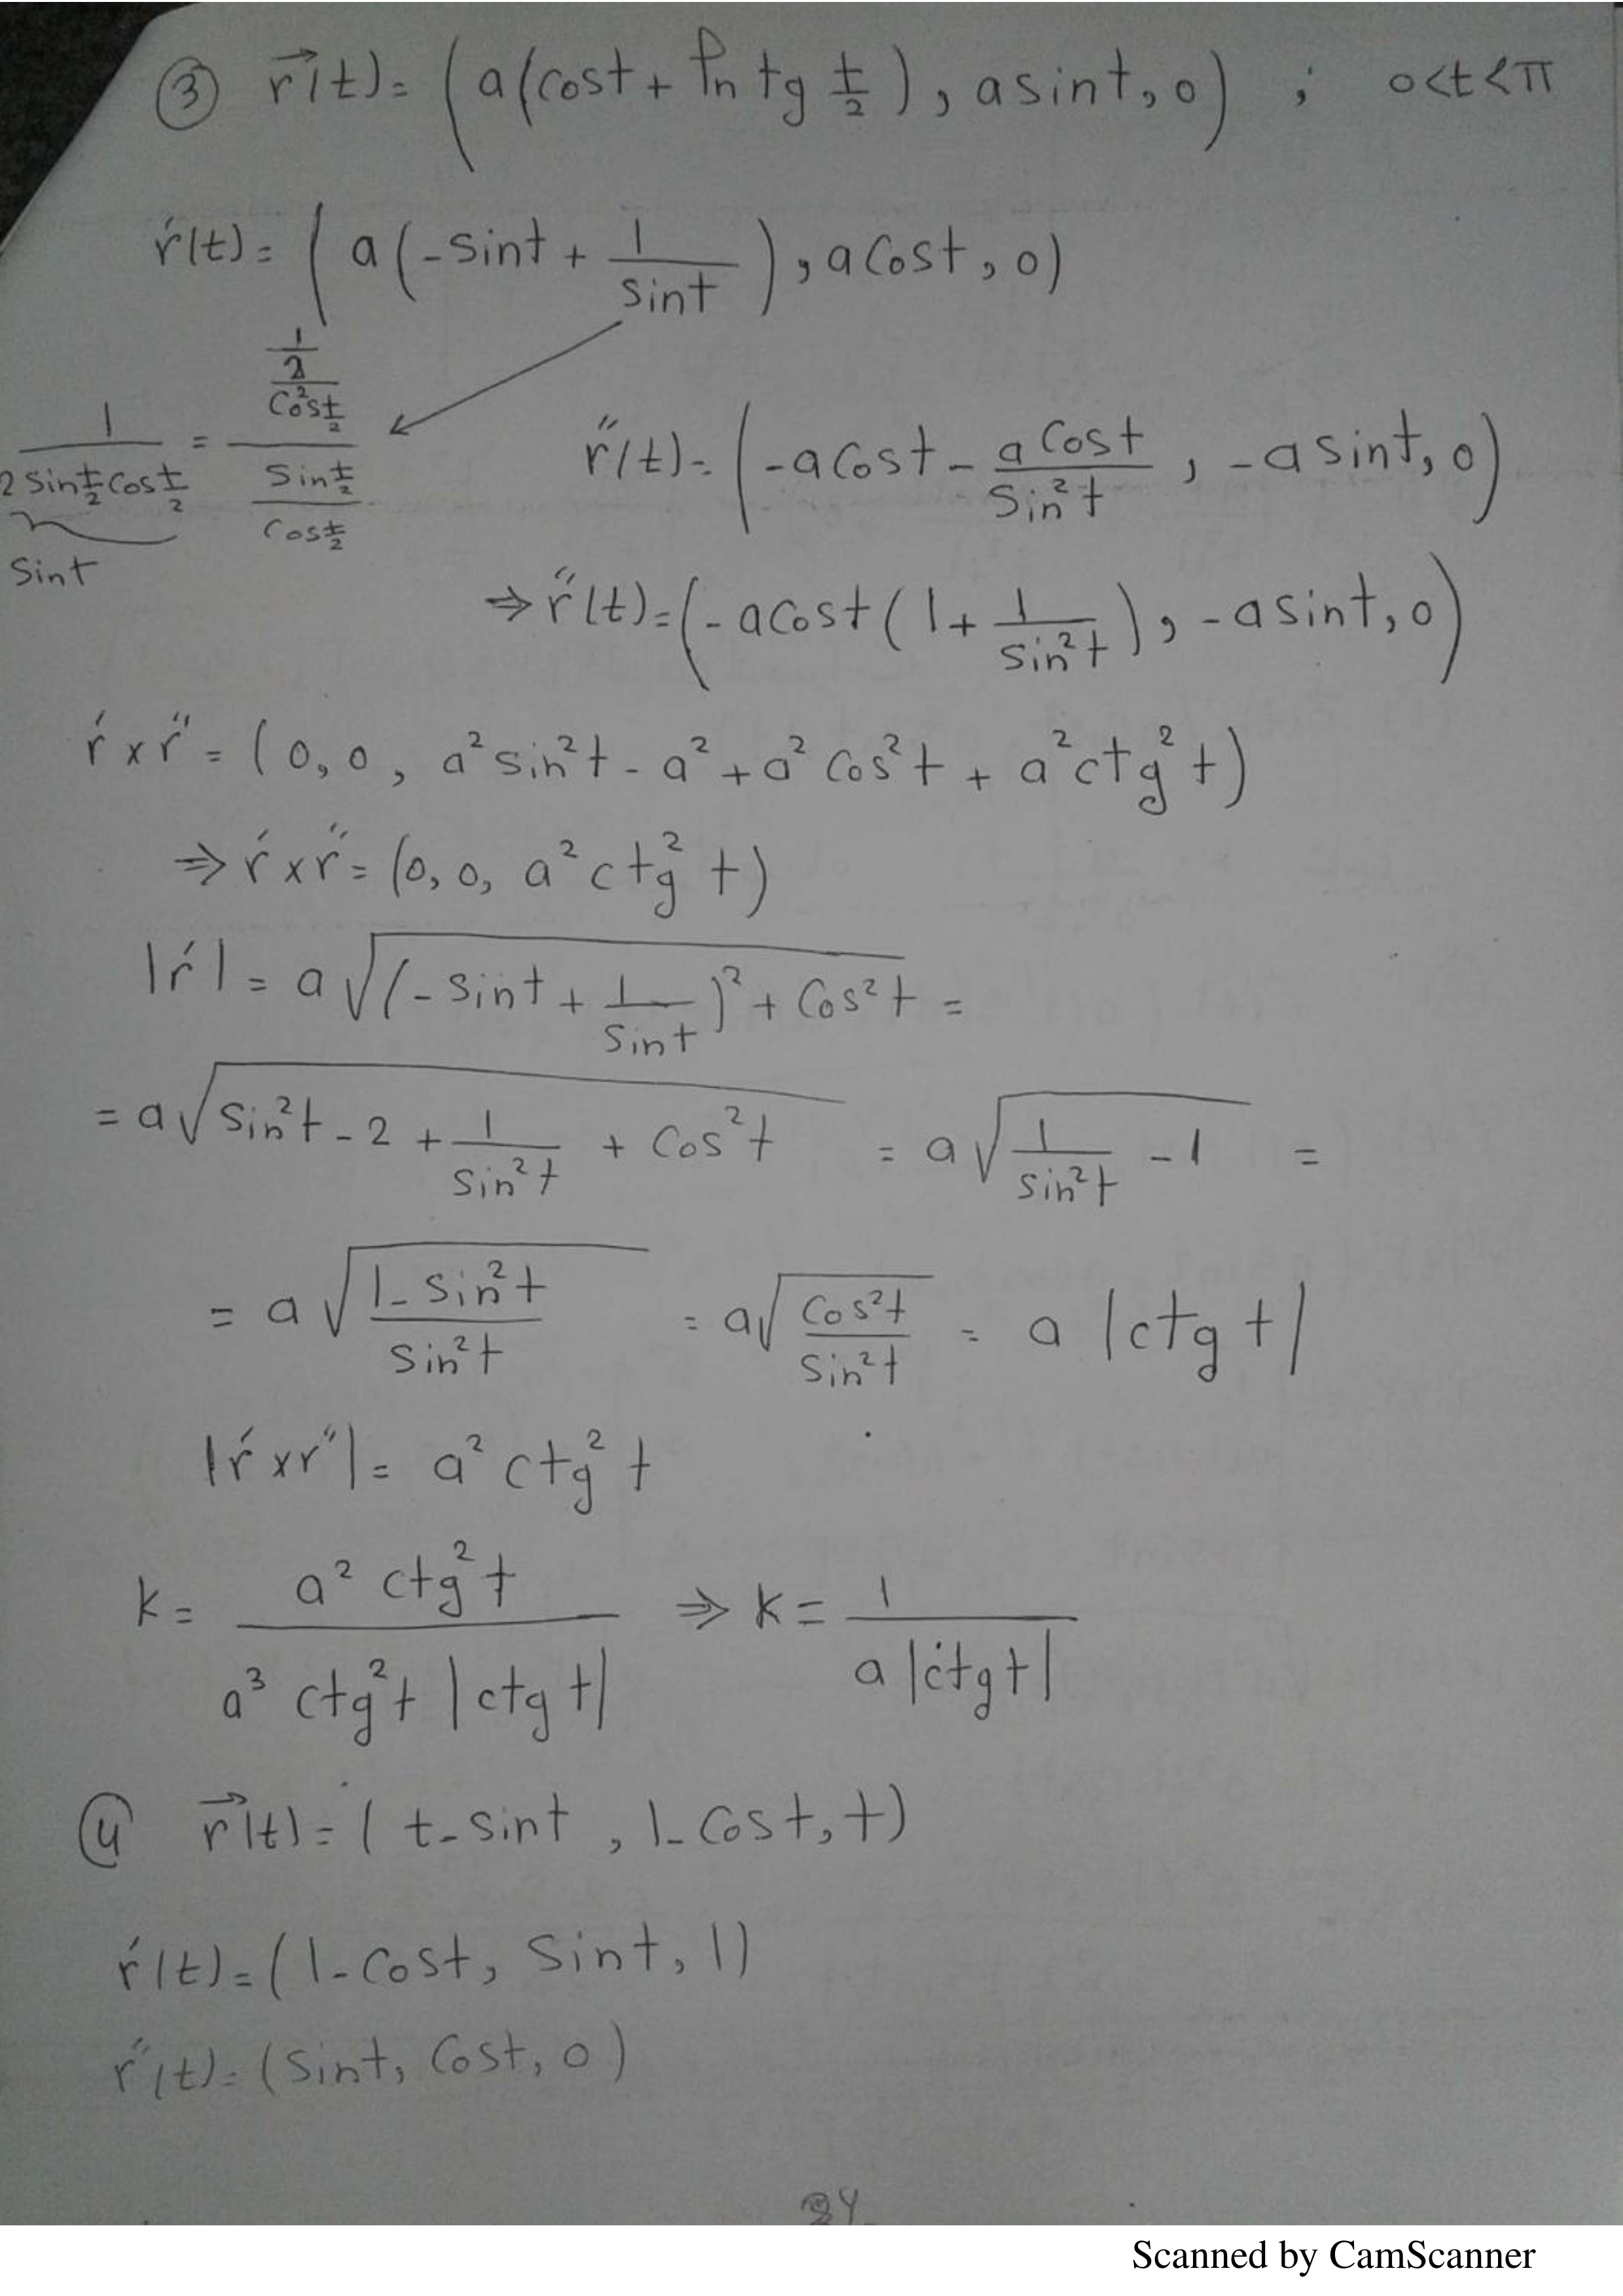 ③ r⃗(t) = (a(cost + ln tg t/2), a sint, 0) ; 0<t<π
ŕ(t) = (a(-sint + 1/sint), a cost, 0)
1/(2 sin t/2 cos t/2) = ((1/2)/(cos² t/2))/((sin t/2)/(cos t/2))
sint
r″(t) = (-a cost - a cost/sin²t, -a sint, 0)
⇒ r″(t) = (-a cost (1 + 1/sin²t), -a sint, 0)
r′ × r″ = (0, 0, a² sin²t - a² + a² cos²t + a² ctg²t)
⇒ r′ × r″ = (0, 0, a² ctg² t)
|r′| = a√((-sint + 1/sint)² + cos²t) =
= a√(sin²t - 2 + 1/sin²t + cos²t) = a√(1/sin²t - 1) =
= a√((1 - sin²t)/sin²t) = a√(cos²t/sin²t) = a |ctg t|
|r′ × r″| = a² ctg² t
k = a² ctg² t/(a³ ctg² t |ctg t|) ⇒ k = 1/(a |ctg t|)
④ r⃗(t) = (t - sint, 1 - cost, t)
r′(t) = (1 - cost, sint, 1)
r″(t) = (sint, cost, 0)
34
Scanned by CamScanner